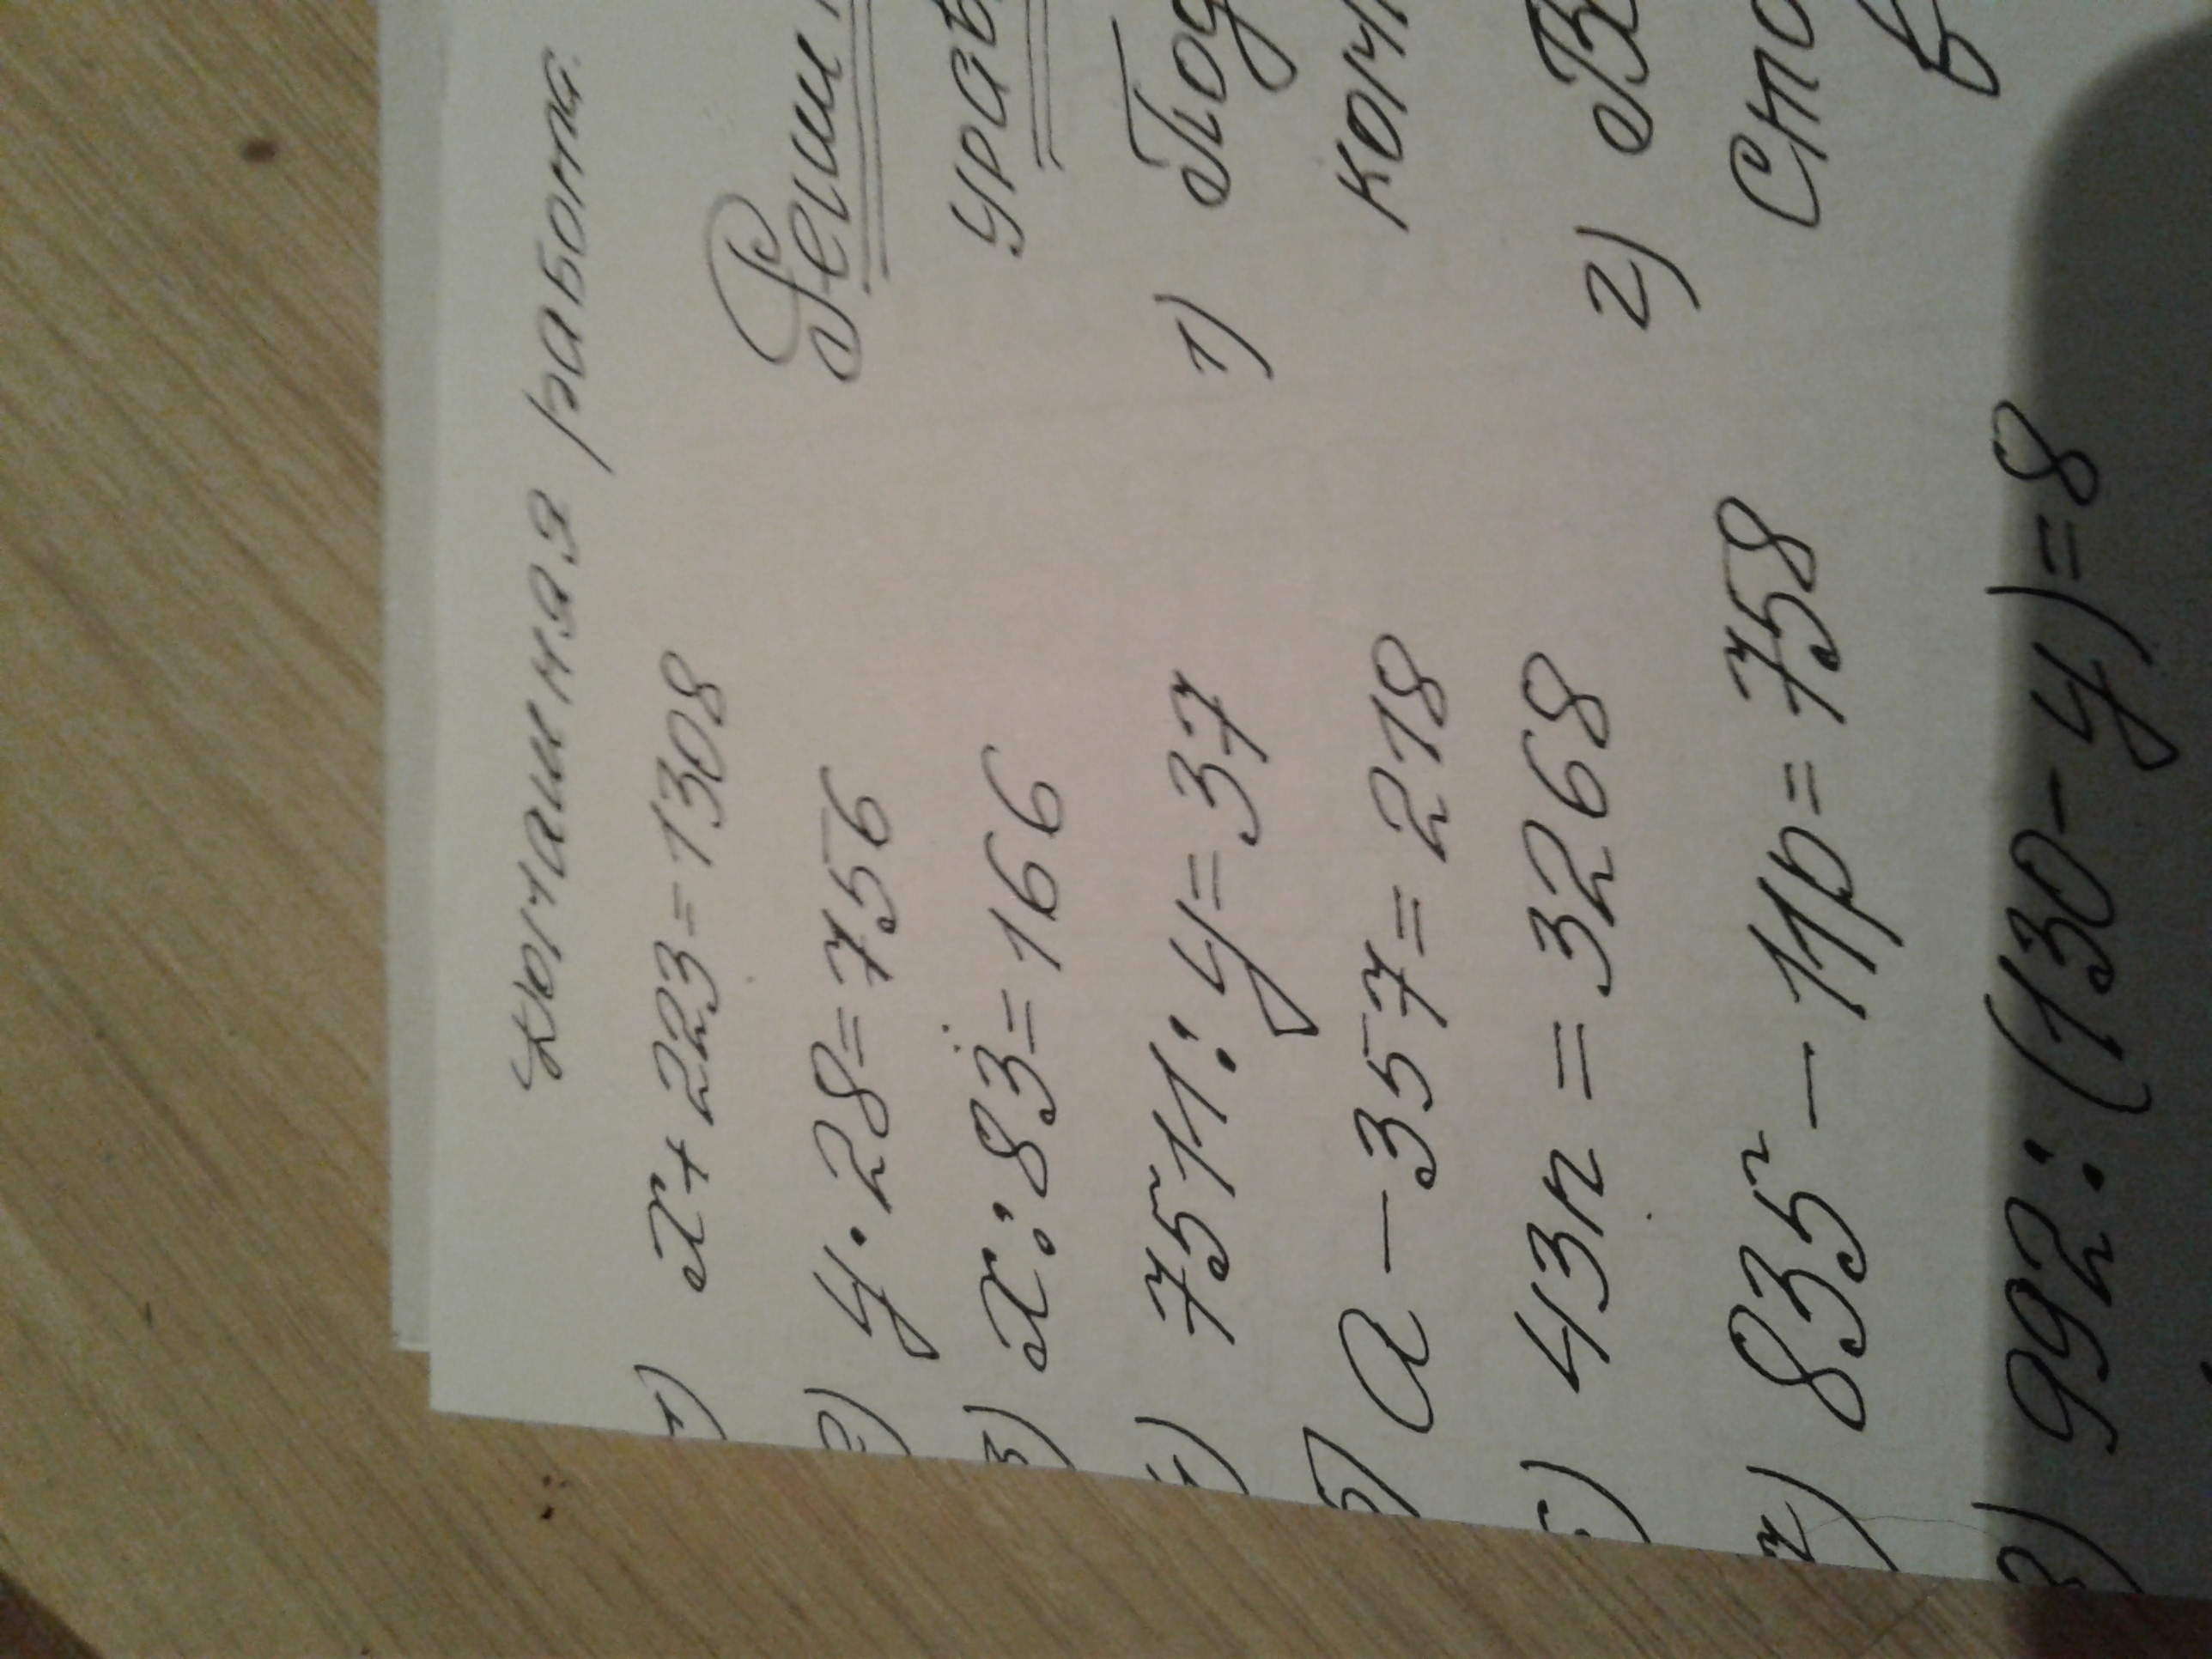 Домашняя работа.
1) x + 223 = 1308
2) y · 28 = 756
3) x : 83 = 166
4) 7511 : y = 37
5) a - 357 = 218
6) 43n = 3268
7) 835 - 11p = 758
8) 992 : (130 - y) = 8
1)
2)